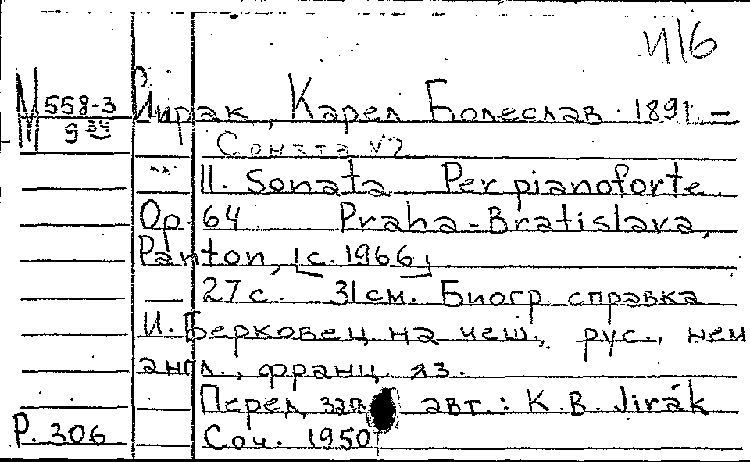 И16
М 558-3
9 34
Йирак, Карел Болеслав. 1891 –
Соната №2
II. Sonata Per pianoforte
Op. 64 Praha-Bratislava,
Panton, [c. 1966]
27 с. 31 см. Биогр справка
И. Берковец на чеш., рус., нем
англ., франц. яз.
Перед загл. авт.: K. B. Jirák
Соч. 1950
P. 306